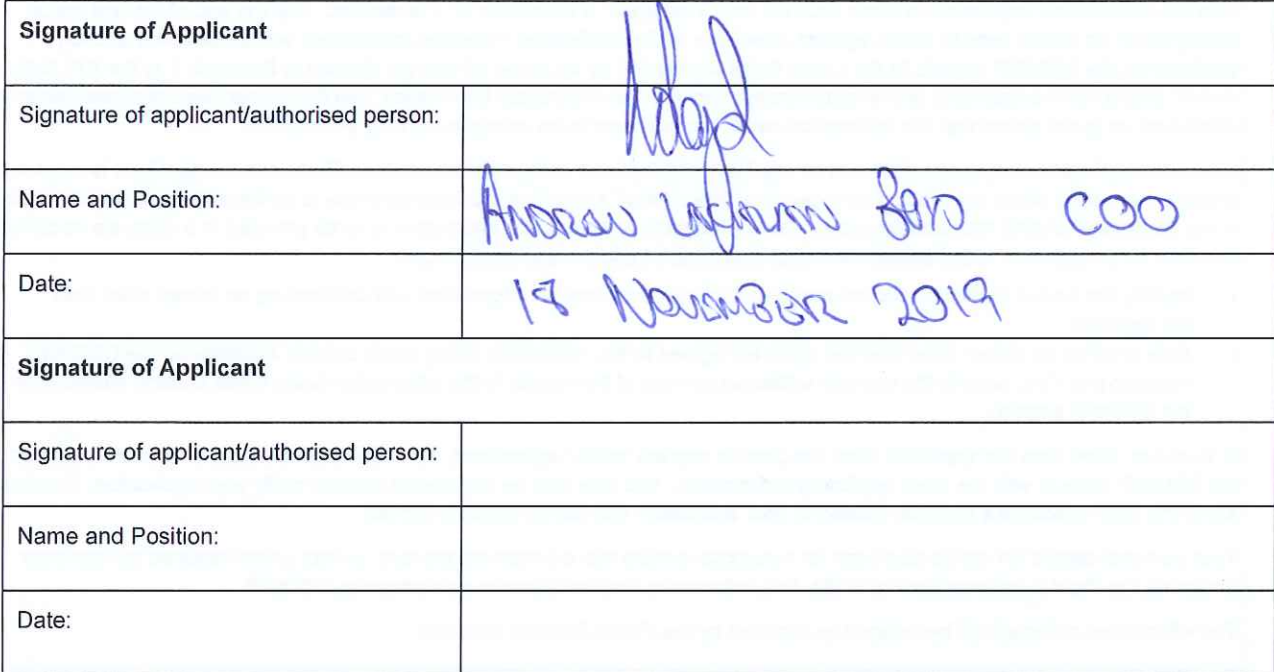 Signature of Applicant
Signature of applicant/authorised person:
Name and Position: ANDREW COO
Date: 18 NOVEMBER 2019
Signature of Applicant
Signature of applicant/authorised person:
Name and Position:
Date: